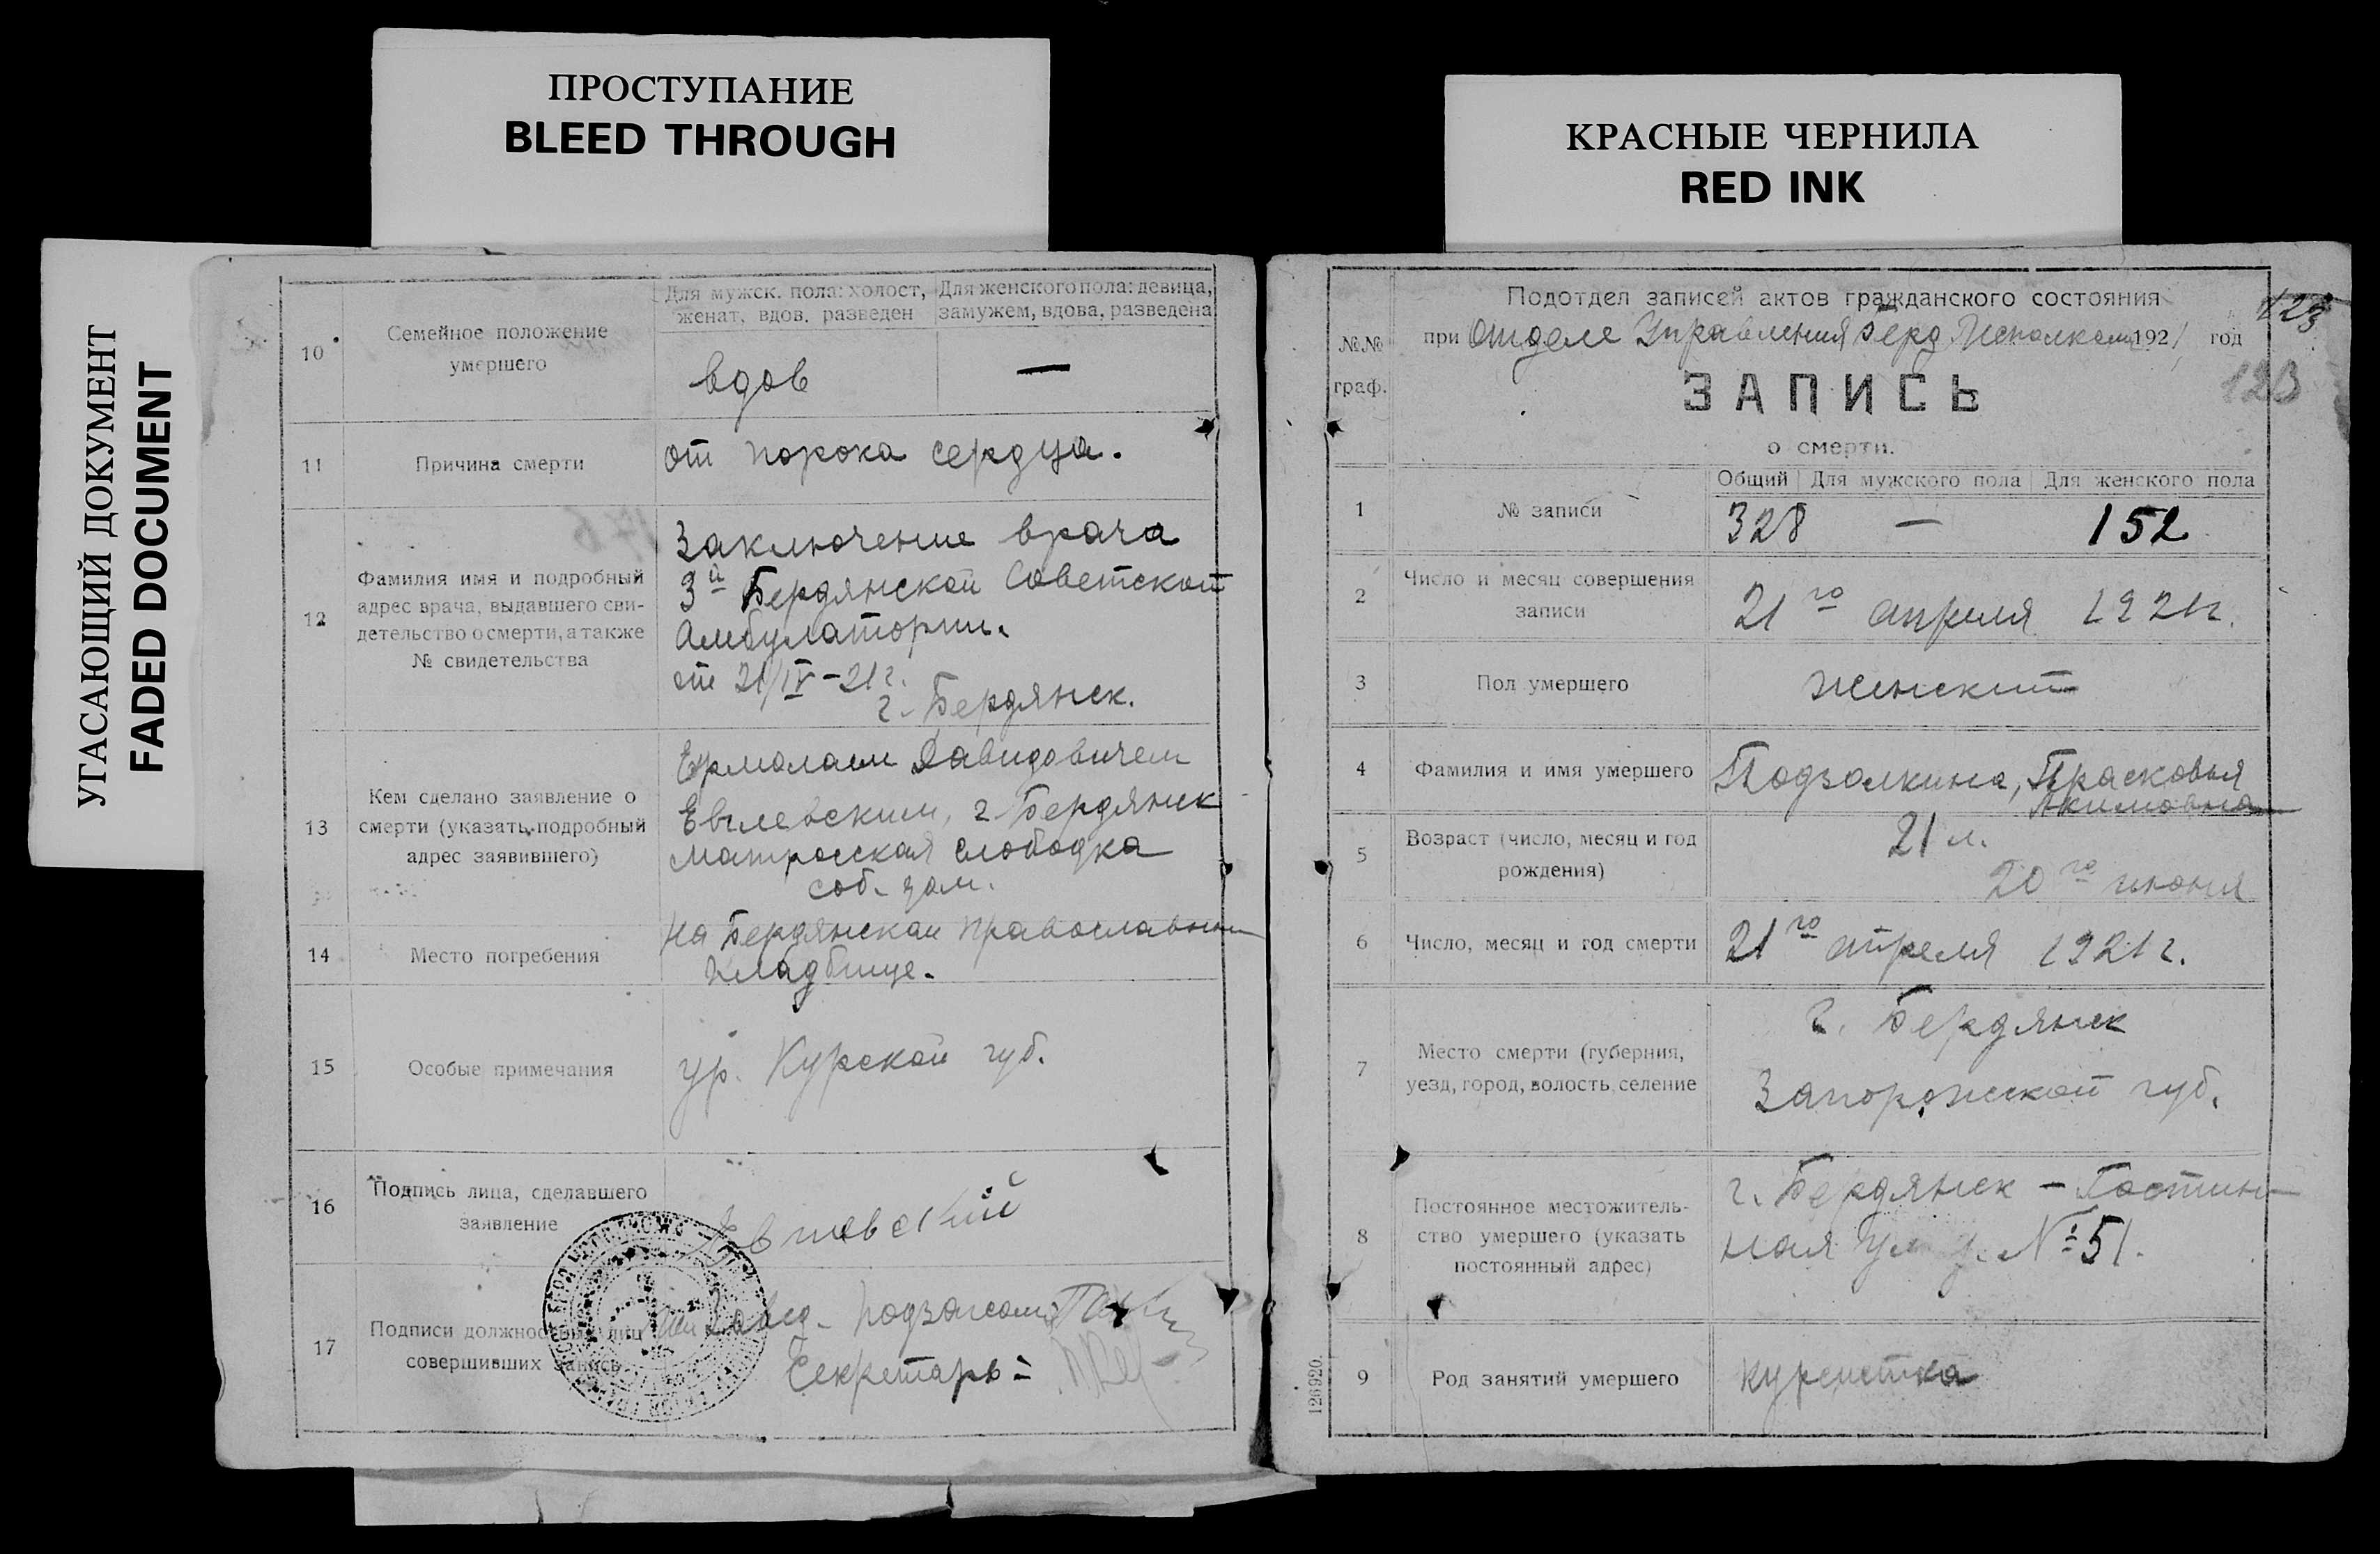 ПРОСТУПАНИЕ
BLEED THROUGH
КРАСНЫЕ ЧЕРНИЛА
RED INK
УГАСАЮЩИЙ ДОКУМЕНТ
FADED DOCUMENT
10
Семейное положение
умершего
Для мужск. пола: холост,
женат, вдов. разведен
Для женского пола: девица,
замужем, вдова, разведена
вдов
—
11
Причина смерти
от порока сердца.
12
Фамилия имя и подробный
адрес врача, выдавшего сви-
детельство о смерти, а также
№ свидетельства
Заключение врача
3й Бердянской Советской
Амбулатории.
от 21/IV-21 г.
г. Бердянск.
13
Кем сделано заявление о
смерти (указать подробный
адрес заявившего)
Ермолаем Давидовичем
Евлевским, г. Бердянск
матросская слободка
соб.
14
Место погребения
На Бердянском православном
кладбище.
15
Особые примечания
ур. Курской губ.
16
Подпись лица, сделавшего
заявление
17
Подписи должностных лиц
совершивших запись
Завед.
Секретарь
№№
граф.
Подотдел записей актов гражданского состояния
при Отделе Управления Берд Исполкома 1921 год
123
123
ЗАПИСЬ
о смерти.
1
№ записи
Общий
Для мужского пола
Для женского пола
328
—
152
2
Число и месяц совершения
записи
21го апреля 1921г.
3
Пол умершего
женский
4
Фамилия и имя умершего
Подзолкина, Прасковья
Акимовна
5
Возраст (число, месяц и год
рождения)
21 л.
20го июня
6
Число, месяц и год смерти
21го апреля 1921г.
7
Место смерти (губерния,
уезд, город, волость, селение
г. Бердянск
Запорожской губ.
8
Постоянное местожитель-
ство умершего (указать
постоянный адрес)
г. Бердянск - Гостин-
ная ул. №51.
9
Род занятий умершего
курсистка
126920.